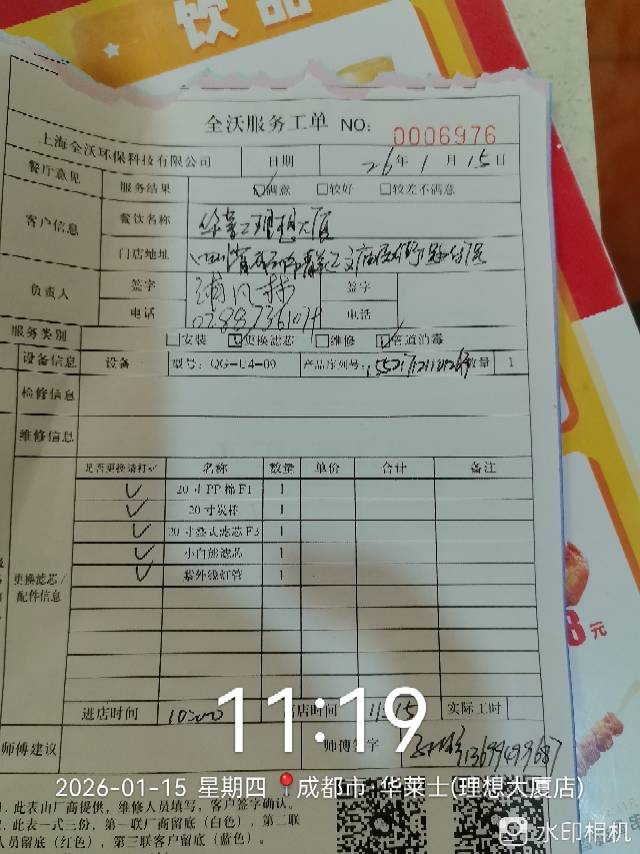 饮品
全沃服务工单 NO: 0006976
上海全沃环保科技有限公司 日期 26年1月15日
餐厅意见 服务结果 满意 较好 较差不满意
客户信息 餐饮名称 华莱士理想大厦
门店地址
负责人 签字 签字
电话 电话
服务类别 安装 更换滤芯 维修 管道消毒
设备信息 设备 型号: QG-U4-00 产品序列号: 数量 1
检修信息
维修信息
是否更换请打✓ 名称 数量 单价 合计 备注
✓ 20寸PP棉F1 1
✓ 20寸炭棒 1
✓ 20寸叠式滤芯F3 1
✓ 小白熊滤芯 1
✓ 紫外线灯管 1
更换滤芯/
配件信息
8元
进店时间 10:00 离店时间 11:15 实际工时
11:19
师傅建议 师傅签字 13699499687
2026-01-15 星期四 成都市·华莱士(理想大厦店)
1. 此表由厂商提供，维修人员填写，客户签字确认。
2. 此表一式三份，第一联厂商留底（白色），第二联
人员留底（红色），第三联客户留底（蓝色）。
水印相机